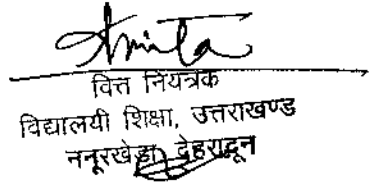 Amita
वित्त नियंत्रक
विद्यालयी शिक्षा, उत्तराखण्ड
ननूरखेड़ा देहरादून